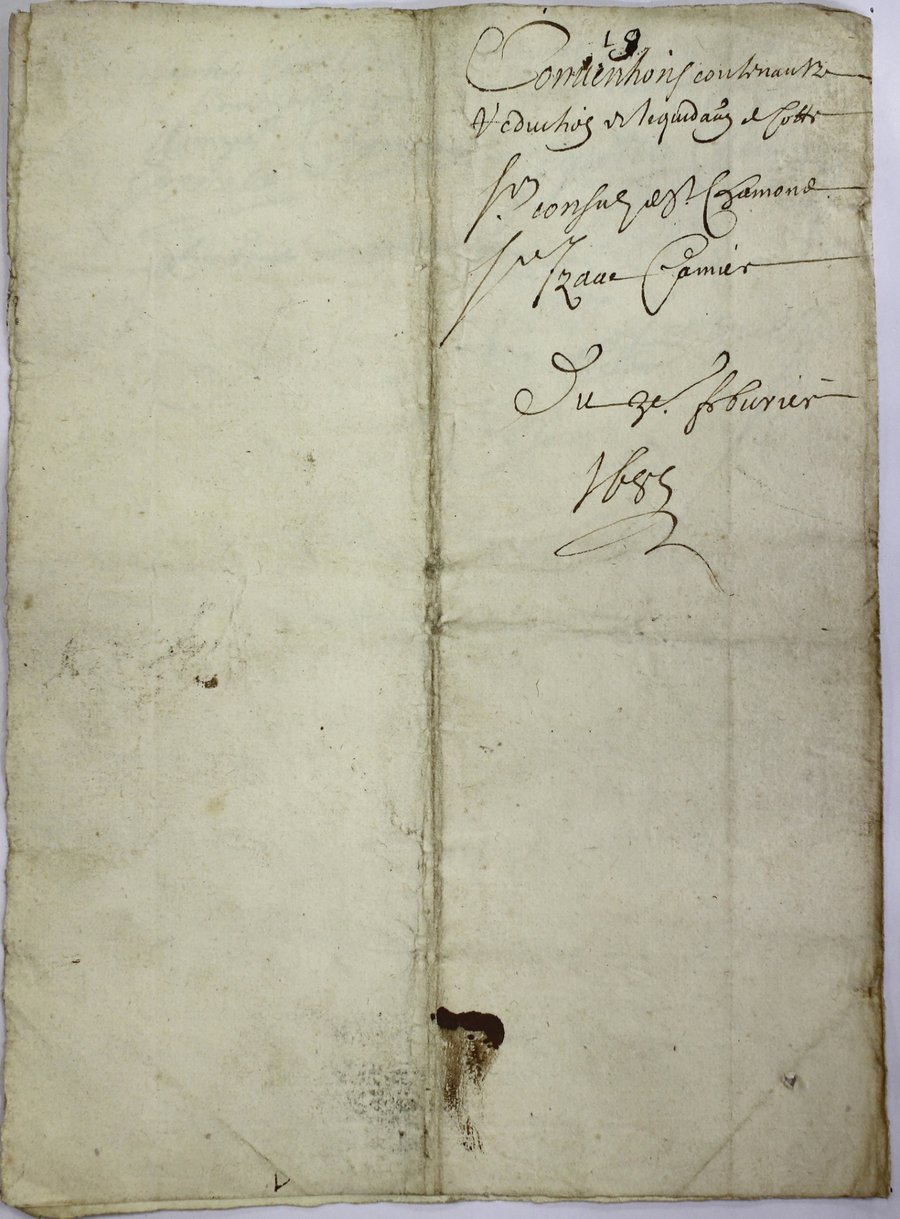 19
Conuentions contenant
Reduction et liquidaõn de Cotte
Srs consulz de St Chamond
Sr Izaac Gamier
Du 3e. feburier
1685